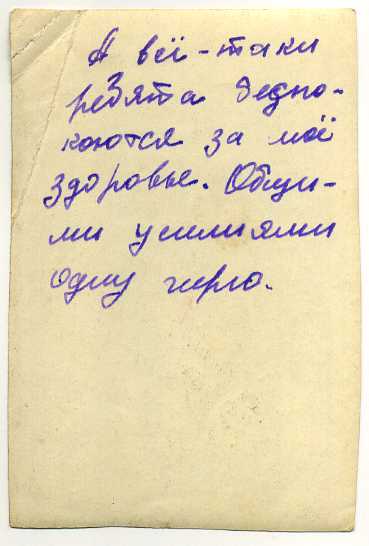 А всё-таки
ребята беспо-
коются за моё
здоровье. Общи-
ми усилиями
одну гирю.